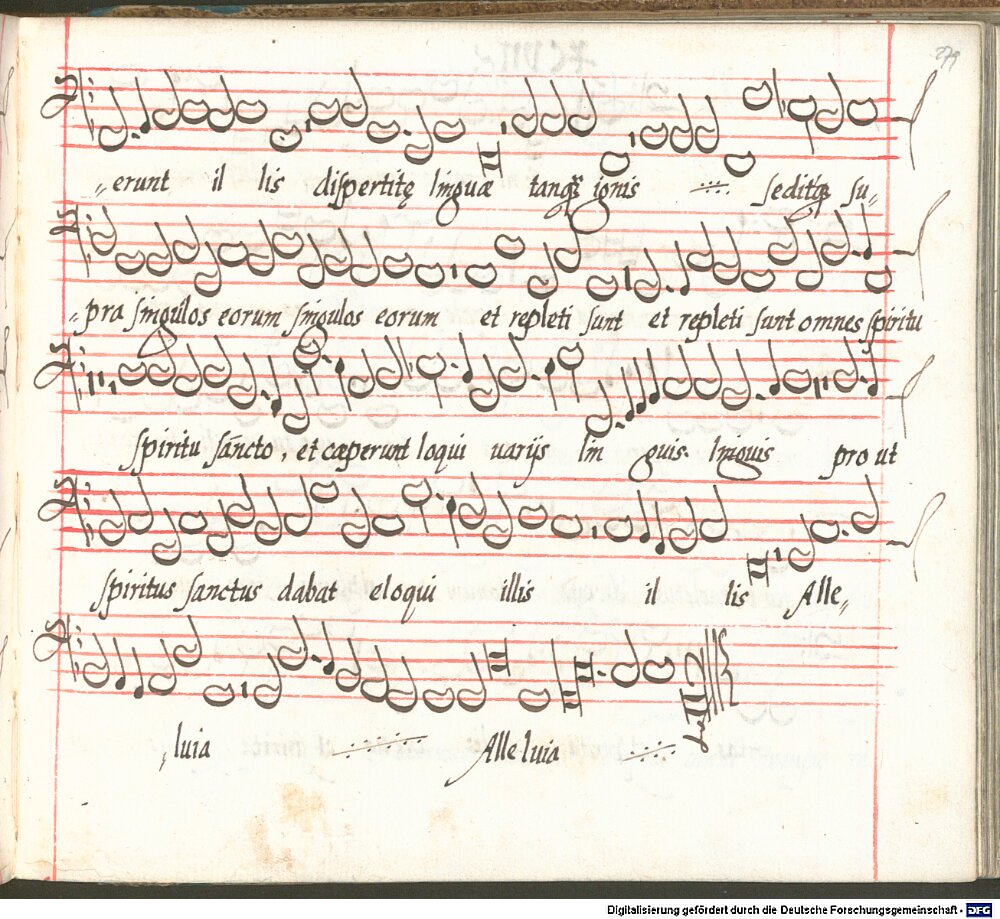 279
„erunt il lis dispertitę linguæ tanq̃ ignis ·/· seditq; su„
„pra singulos eorum singulos eorum et repleti sunt et repleti sunt omnes spiritu
spiritu sañcto, et cæperunt loqui uarijs lin guis. linguis pro ut
spiritus sanctus dabat eloqui illis il lis Alle„
„luia ·/· Alleluia ·/·
Digitalisierung gefördert durch die Deutsche Forschungsgemeinschaft - DFG